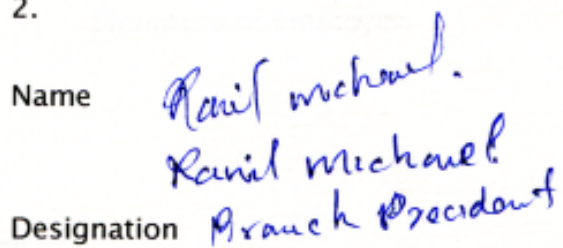 2.
Name Ranil michael.
Ranil Michael
Designation Branch President